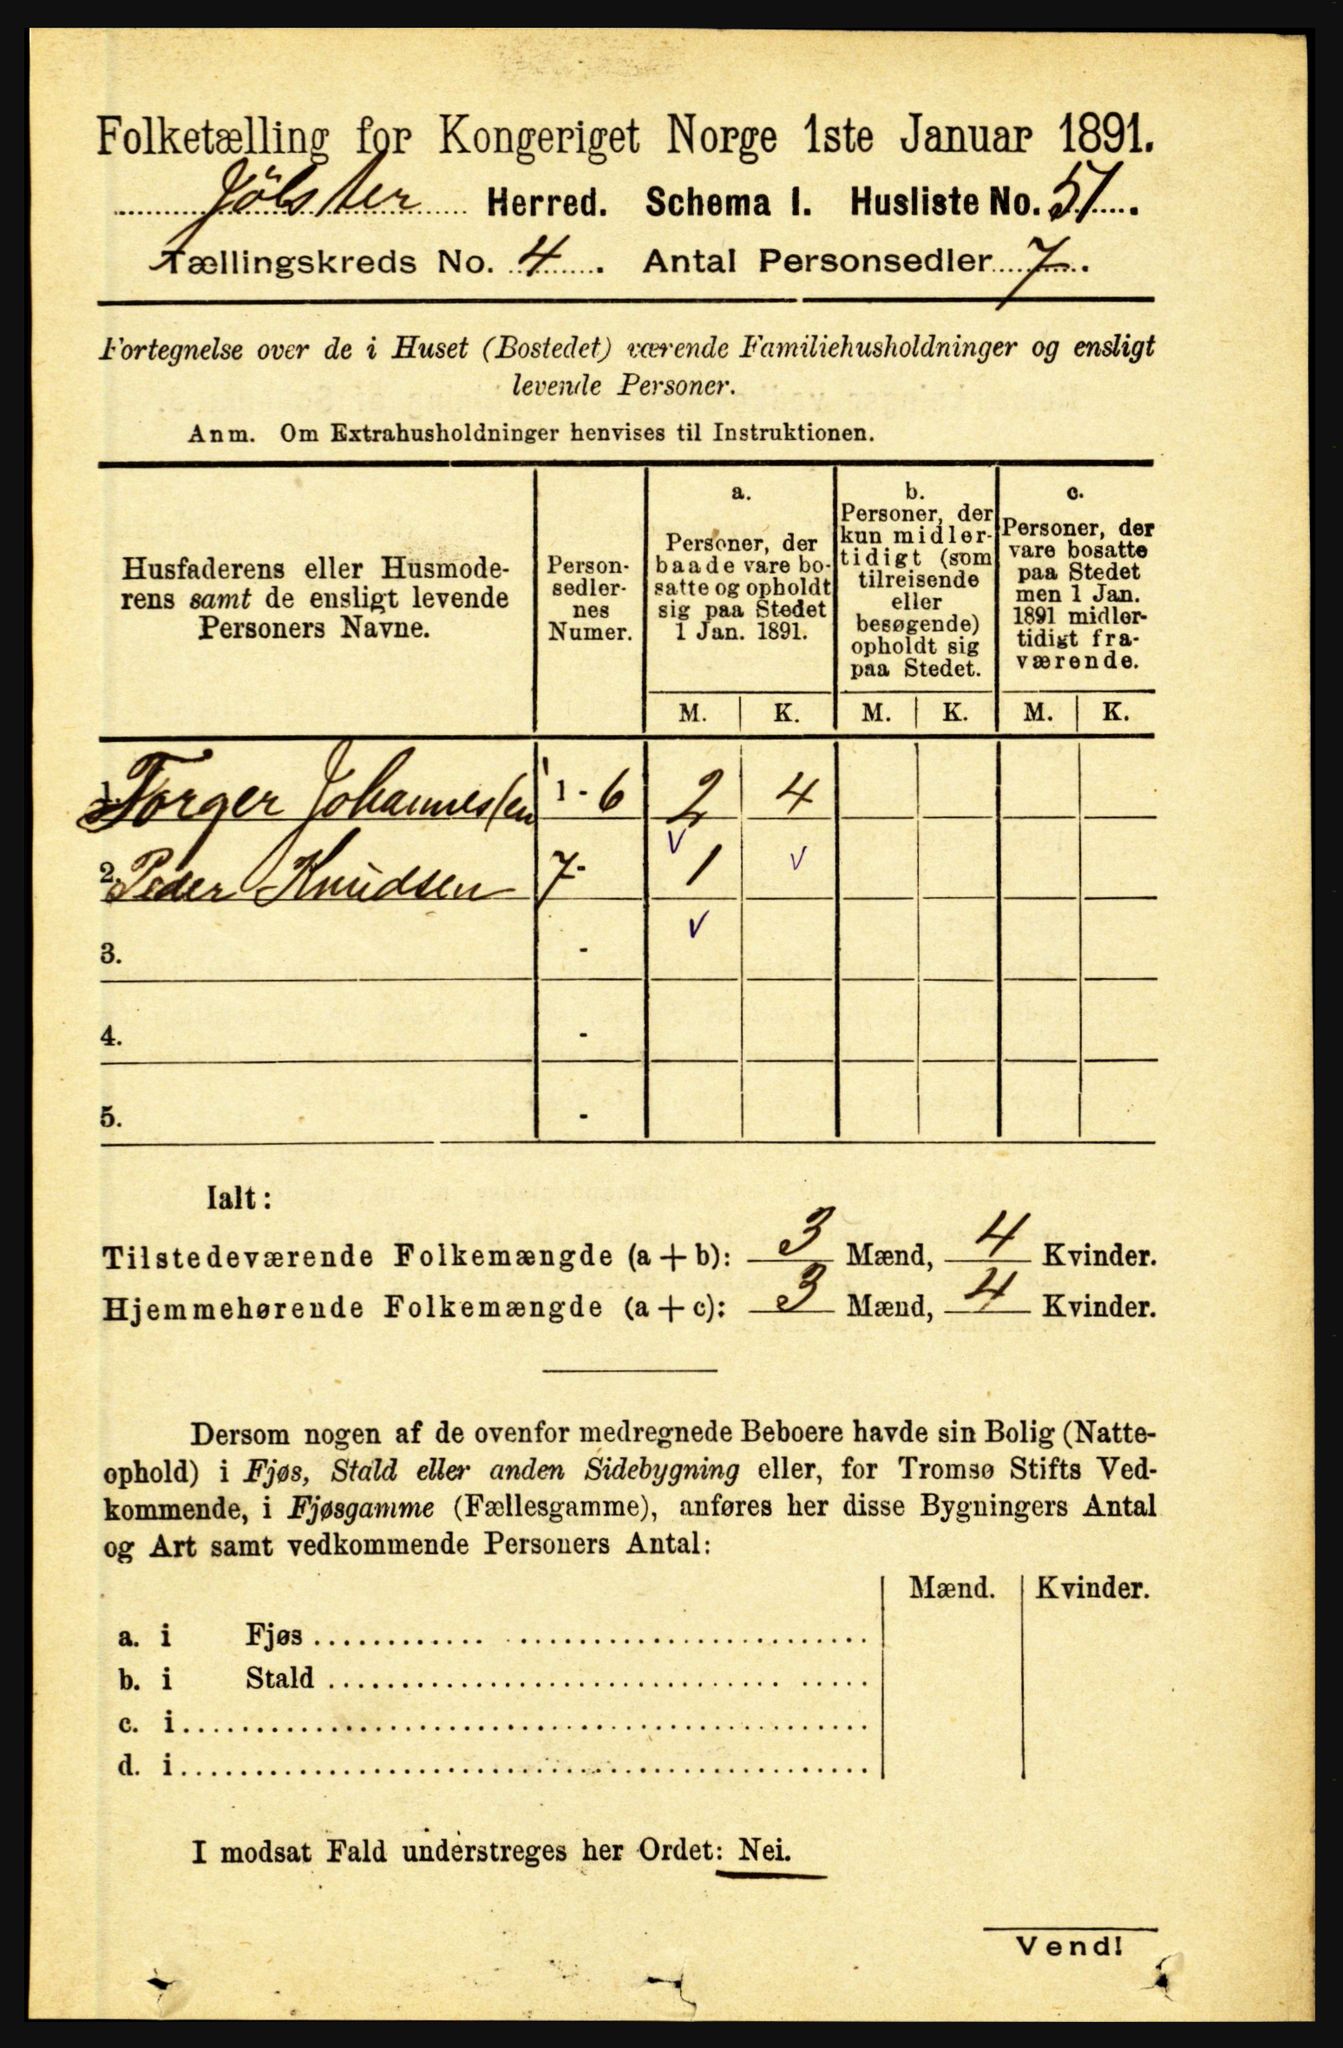 Folketælling for Kongeriget Norge 1ste Januar 1891.
Jölster Herred. Schema I. Husliste No. 51.
Tællingskreds No. 4. Antal Personsedler 7.
Fortegnelse over de i Huset (Bostedet) værende Familiehusholdninger og ensligt
levende Personer.
Anm. Om Extrahusholdninger henvises til Instruktionen.
Husfaderens eller Husmode-
rens samt de ensligt levende
Personers Navne.
Person-
sedler-
nes
Numer.
a.
Personer, der
baade vare bo-
satte og opholdt
sig paa Stedet
1 Jan. 1891.
b.
Personer, der
kun midler-
tidigt (som
tilreisende
eller
besøgende)
opholdt sig
paa Stedet.
c.
Personer, der
vare bosatte
paa Stedet
men 1 Jan.
1891 midler-
tidigt fra-
værende.
M. K. M. K. M. K.
1. Torger Johannessen 1 - 6 2 4
2. Peder Knudsen 7 - 1
3. -
4. -
5. -
Ialt:
Tilstedeværende Folkemængde (a + b): 3 Mænd, 4 Kvinder.
Hjemmehørende Folkemængde (a + c): 3 Mænd, 4 Kvinder.
Dersom nogen af de ovenfor medregnede Beboere havde sin Bolig (Natte-
ophold) i Fjøs, Stald eller anden Sidebygning eller, for Tromsø Stifts Ved-
kommende, i Fjøsgamme (Fællesgamme), anføres her disse Bygningers Antal
og Art samt vedkommende Personers Antal:
Mænd. Kvinder.
a. i Fjøs
b. i Stald
c. i
d. i
I modsat Fald understreges her Ordet: Nei.
Vend!